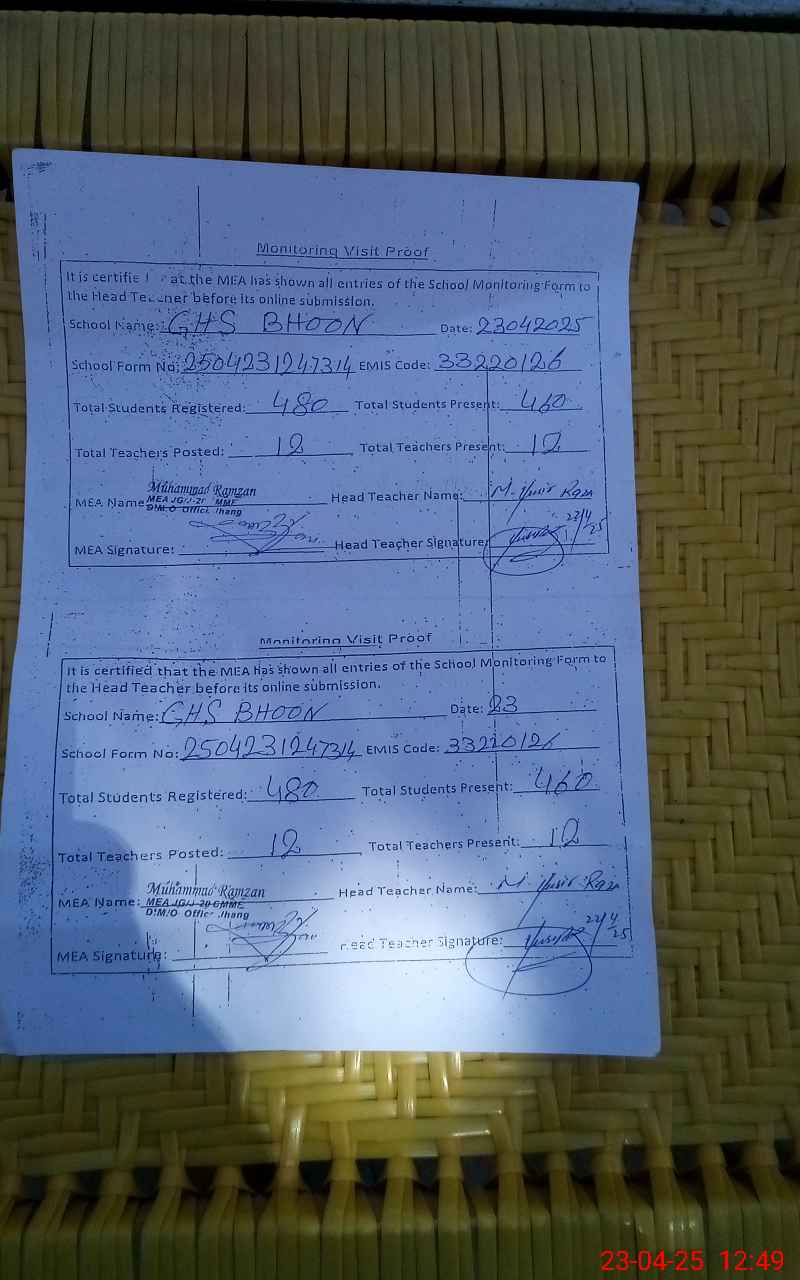 Monitoring Visit Proof
It is certifie at the MEA has shown all entries of the School Monitoring Form to
the Head Teacher before its online submission.
School Name: GHS BHOON Date: 23042025
School Form No: 2504231247314 EMIS Code: 33220126
Total Students Registered: 480 Total Students Present: 460
Total Teachers Posted: 12 Total Teachers Present: 12
Muhammad Ramzan
MEA Name Head Teacher Name: M. Raza
D.M.O Office Jhang
MEA Signature: Head Teacher Signature:
Monitoring Visit Proof
It is certified that the MEA has shown all entries of the School Monitoring Form to
the Head Teacher before its online submission.
School Name: GHS BHOON Date: 23
School Form No: 2504231247314 EMIS Code: 33220126
Total Students Registered: 480 Total Students Present: 460
Total Teachers Posted: 12 Total Teachers Present: 12
Muhammad Ramzan
MEA Name: Head Teacher Name: M. Raza
D.M.O Office Jhang
MEA Signature: Head Teacher Signature:
23-04-25 12:49